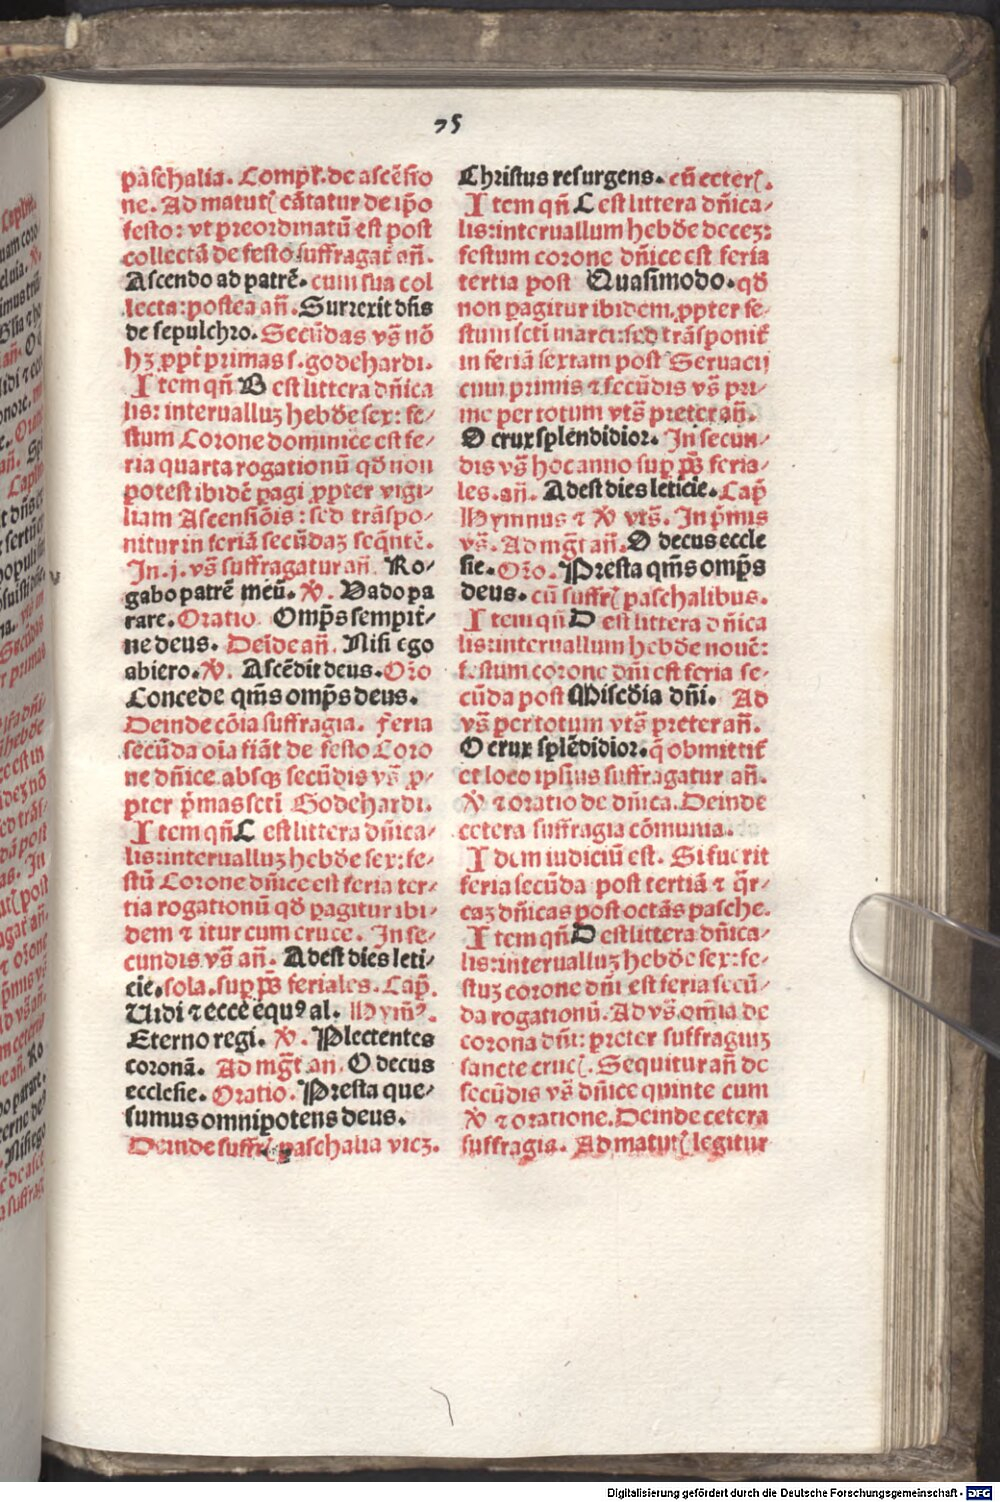 75
paschalia. Complꝛ̄. de ascēsio
ne. Ad matutꝭ cātatur de ip̄o
festo: vt preordinatū est post
collectā de festo suffragat̄ añ.
Ascendo ad patrē. cum sua col
lecta: postea añ. Surrexit dn̄s
de sepulchro. Secūdas vs̄ nō
hꝫ ꝓpt̄ primas s. godehardi.
Item qn̄ B est littera dn̄ica
lis: interualluꝫ hebd̄e sex: fe⸗
stum Corone dominice est fe⸗
ria quarta rogationū qd̄ non
potest ibidē pagi ꝓpter vigi⸗
liam Ascensiōis: sed trāspo⸗
nitur in feriā secūdaꝫ seqn̄tē.
In .j. vs̄ suffragatur añ. Ro⸗
gabo patrē meū. ꝟ. Vado pa
rare. Oratio. Omp̄s sempit̄⸗
ne deus. Deīde añ. Nisi ego
abiero. ꝟ. Ascēdit deus. Or̄o
Concede qm̄s omp̄s deus.
Deinde cōia suffragia. Feria
secūda oīa fiāt de festo Coro
ne dn̄ice. absqꝫ secūdis vs̄ ꝓ⸗
pter p̄mas scti Godehardi.
Item qn̄ C est littera dn̄ica⸗
lis: interualluꝫ hebd̄e sex: fe⸗
stū Corone dn̄ice est feria ter⸗
tia rogationū qd̄ pagitur ibi⸗
dem ⁊ itur cum cruce. In se⸗
cundis vs̄ añ. Adest dies leti⸗
cie. sola. sup p̄s feriales. Cap̄.
Uidi ⁊ ecce equꝰ al. Hymꝰ.
Eterno regi. ꝟ. Plectentes
coronā. Ad mḡt an. O decus
ecclesie. Oratio. Presta que⸗
sumus omnipotens deus.
Deinde suffrꝭ paschalia vicꝫ.
Christus resurgens. cū ceterꝭ.
Item qn̄ C est littera dn̄ica⸗
lis: interuallum hebd̄e deceꝫ:
festum corone dn̄ice est feria
tertia post Quasimodo. qd̄
non pagitur ibidem ꝓpter fe⸗
stum scti marci: sed trāsponit̄
in feriā sextam post Seruacij
cum primis ⁊ secūdis vs̄ pri⸗
me per totum vts̄ preter añ.
O crux splendidior. In secun⸗
dis vs̄ hoc anno sup p̄s feria⸗
les. añ. Adest dies leticie. Cap̄
Hymnus ⁊ ꝟ vts̄. In p̄mis
vs̄. Ad mḡt añ. O decus eccle
sie. Or̄o. Presta qm̄s omp̄s
deus. cū suffrꝭ paschalibus.
Item qn̄ D est littera dn̄ica
lis: interuallum hebd̄e nouē:
festum corone dn̄i est feria se⸗
cūda post Misedīa dn̄i. Ad
vs̄ per totum vts̄ preter añ.
O crux splēdidior. q̄ obmittit̄
et loco ipsius suffragatur añ.
ꝟ ⁊ oratio de dn̄ica. Deinde
cetera suffragia cōmunia.
Idem iudiciū est. Si fuerit
feria secūda post tertiā ⁊ q̄r⸗
caꝫ dn̄icas post octās pasche.
Item qn̄ D est littera dn̄ica⸗
lis: interualluꝫ hebd̄e sex: fe⸗
stuꝫ corone dn̄i est feria secū⸗
da rogationū. Ad vs̄ omīa de
corona dn̄i: preter suffragiuꝫ
sancte crucꝭ. Sequitur añ de
secūdis vs̄ dn̄ice quinte cum
ꝟ ⁊ oratione. Deinde cetera
suffragia. Ad matutꝭ legitur
Digitalisierung gefördert durch die Deutsche Forschungsgemeinschaft - DFG